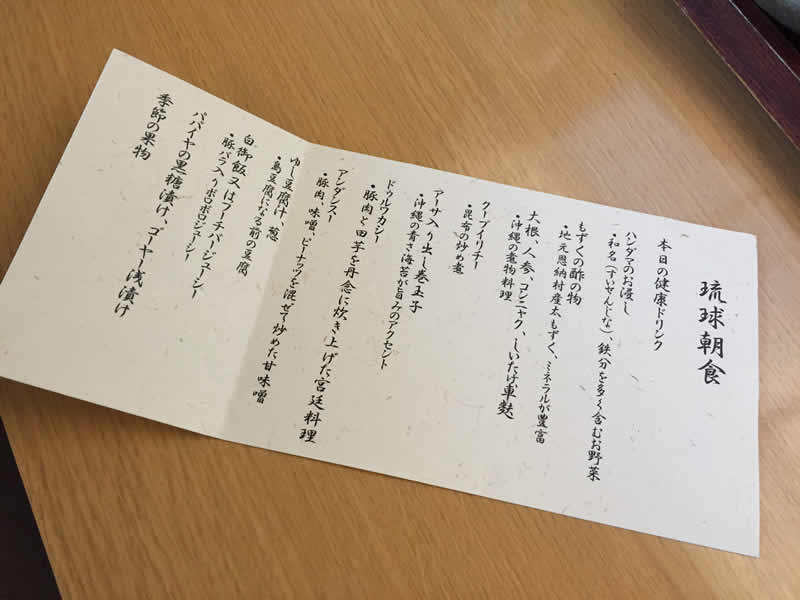 琉球朝食
本日の健康ドリンク
ハンダマのお浸し
・和名(すいぜんじな)、鉄分を多く含むお野菜
もずくの酢の物
・地元恩納村産太もずく、ミネラルが豊富
大根、人参、コンニャク、しいたけ、車麩
・沖縄の煮物料理
クーブイリチー
・昆布の炒め煮
アーサ入り出し巻玉子
・沖縄の青さ海苔が旨みのアクセント
ドゥルワカシー
・豚肉と田芋を丹念に炊き上げた宮廷料理
アンダンスー
・豚肉、味噌、ピーナッツを混ぜて炒めた甘味噌
ゆし豆腐汁、葱
・島豆腐になる前の豆腐
白御飯又はフーチバージューシー
・豚バラ入りボロボロジューシー
パパイヤの黒糖漬け、ゴーヤー浅漬け
季節の果物